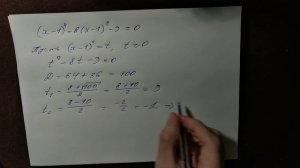 (x-1)⁴-8(x-1)²-9=0
Пусть (x-1)²=t, t≥0
t²-8t-9=0
D=64+36=100
t₁=(8+√100)/2=(8+10)/2=9
t₂=(8-10)/2=-2/2=-1 ⇒